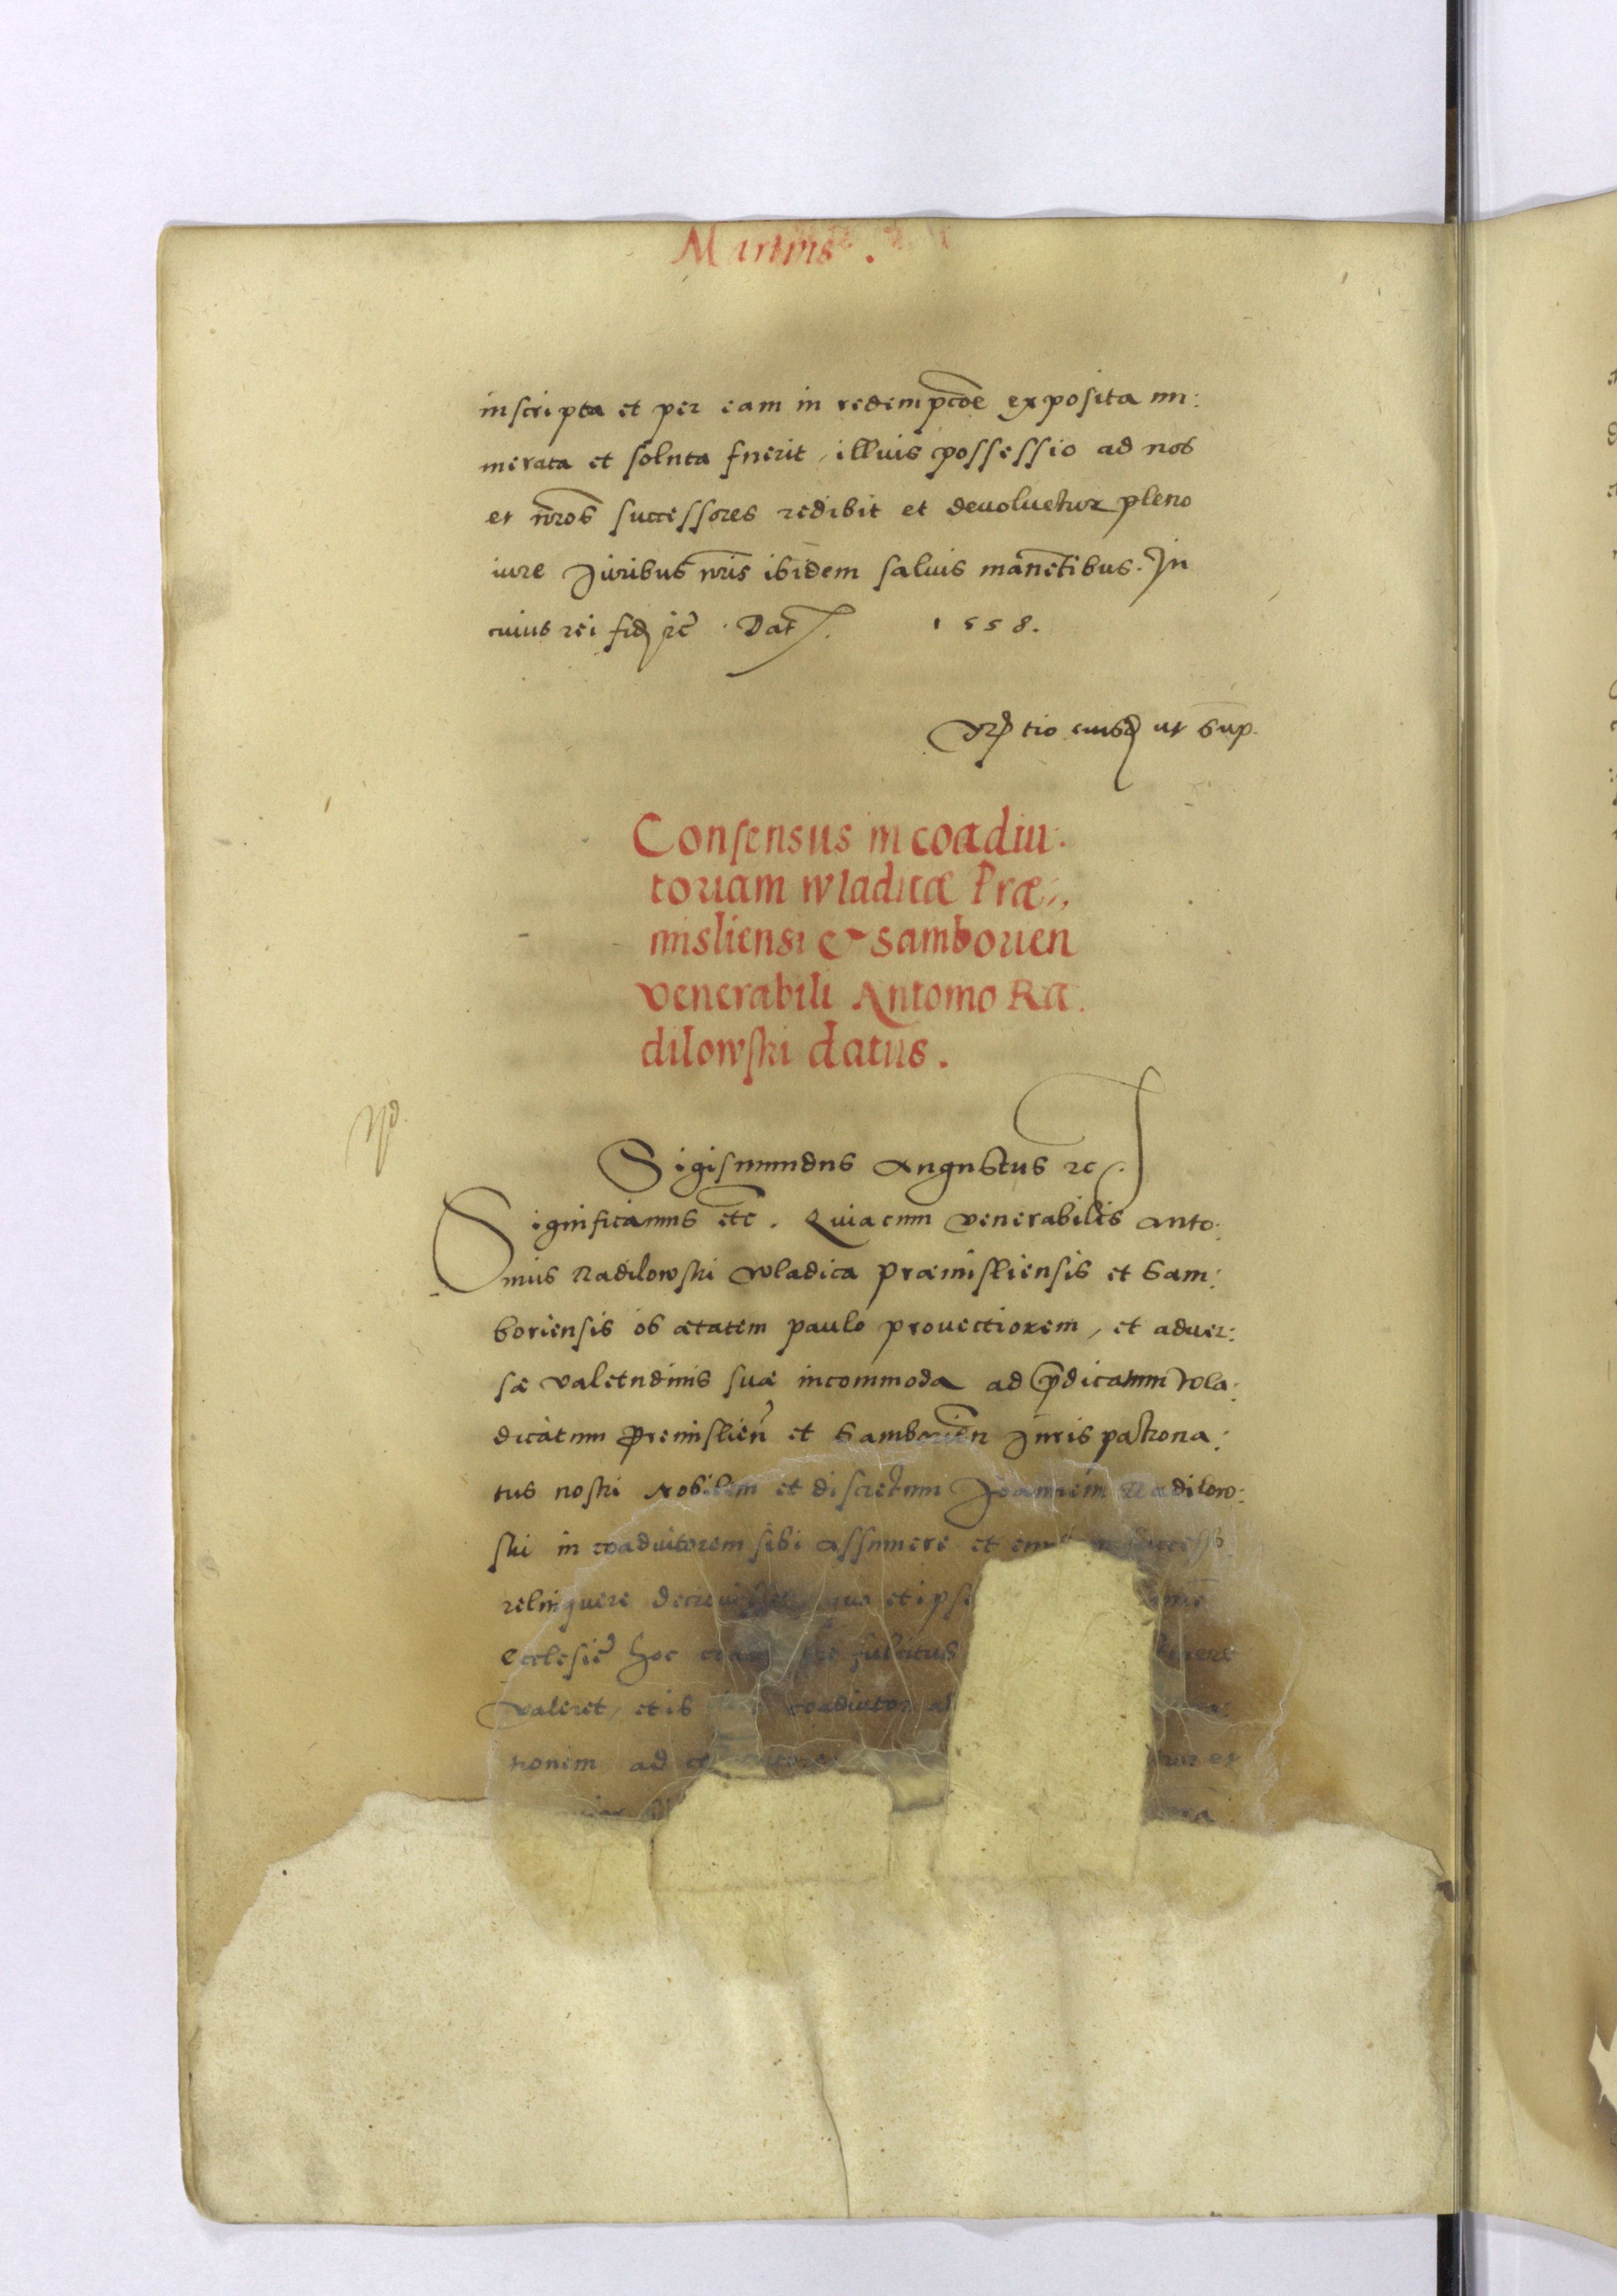 Martius.
inscripta et per eam in redempcōe exposita nu:
merata et soluta fuerit, illius possessio ad nos
et nr̄os successores redibit et deuoluetur pleno
iure Juribus nr̄is ibidem saluis manentibus. In
cuius rei fid etc̄. Dat. 1558.
tio eiusd ut sup.
Consensus in coadiu:
toriam wladicæ Præ,,
misliensi & Samborien
venerabili Antonio Ra.
dilowski datus.
Sigismundus Augustus etc.
Significamus etc. Quia cum venerabilis Anto:
nius Radilowski wladica præmisliensis et Sam:
boriensis ob ætatem paulo prouectiorem, et aduer:
sæ valetudinis suæ incommoda ad p̄dicatum wla:
dicatum Premislien̄ et Samborien̄ Juris patrona:
tus nostri Nobilem et discretum Joannem Radilow:
ski in coadiutorem sibi assumere et
relinquere et ips
Ecclesie hoc fulcitus
valeret, et is coadiutor al
tionem ad et